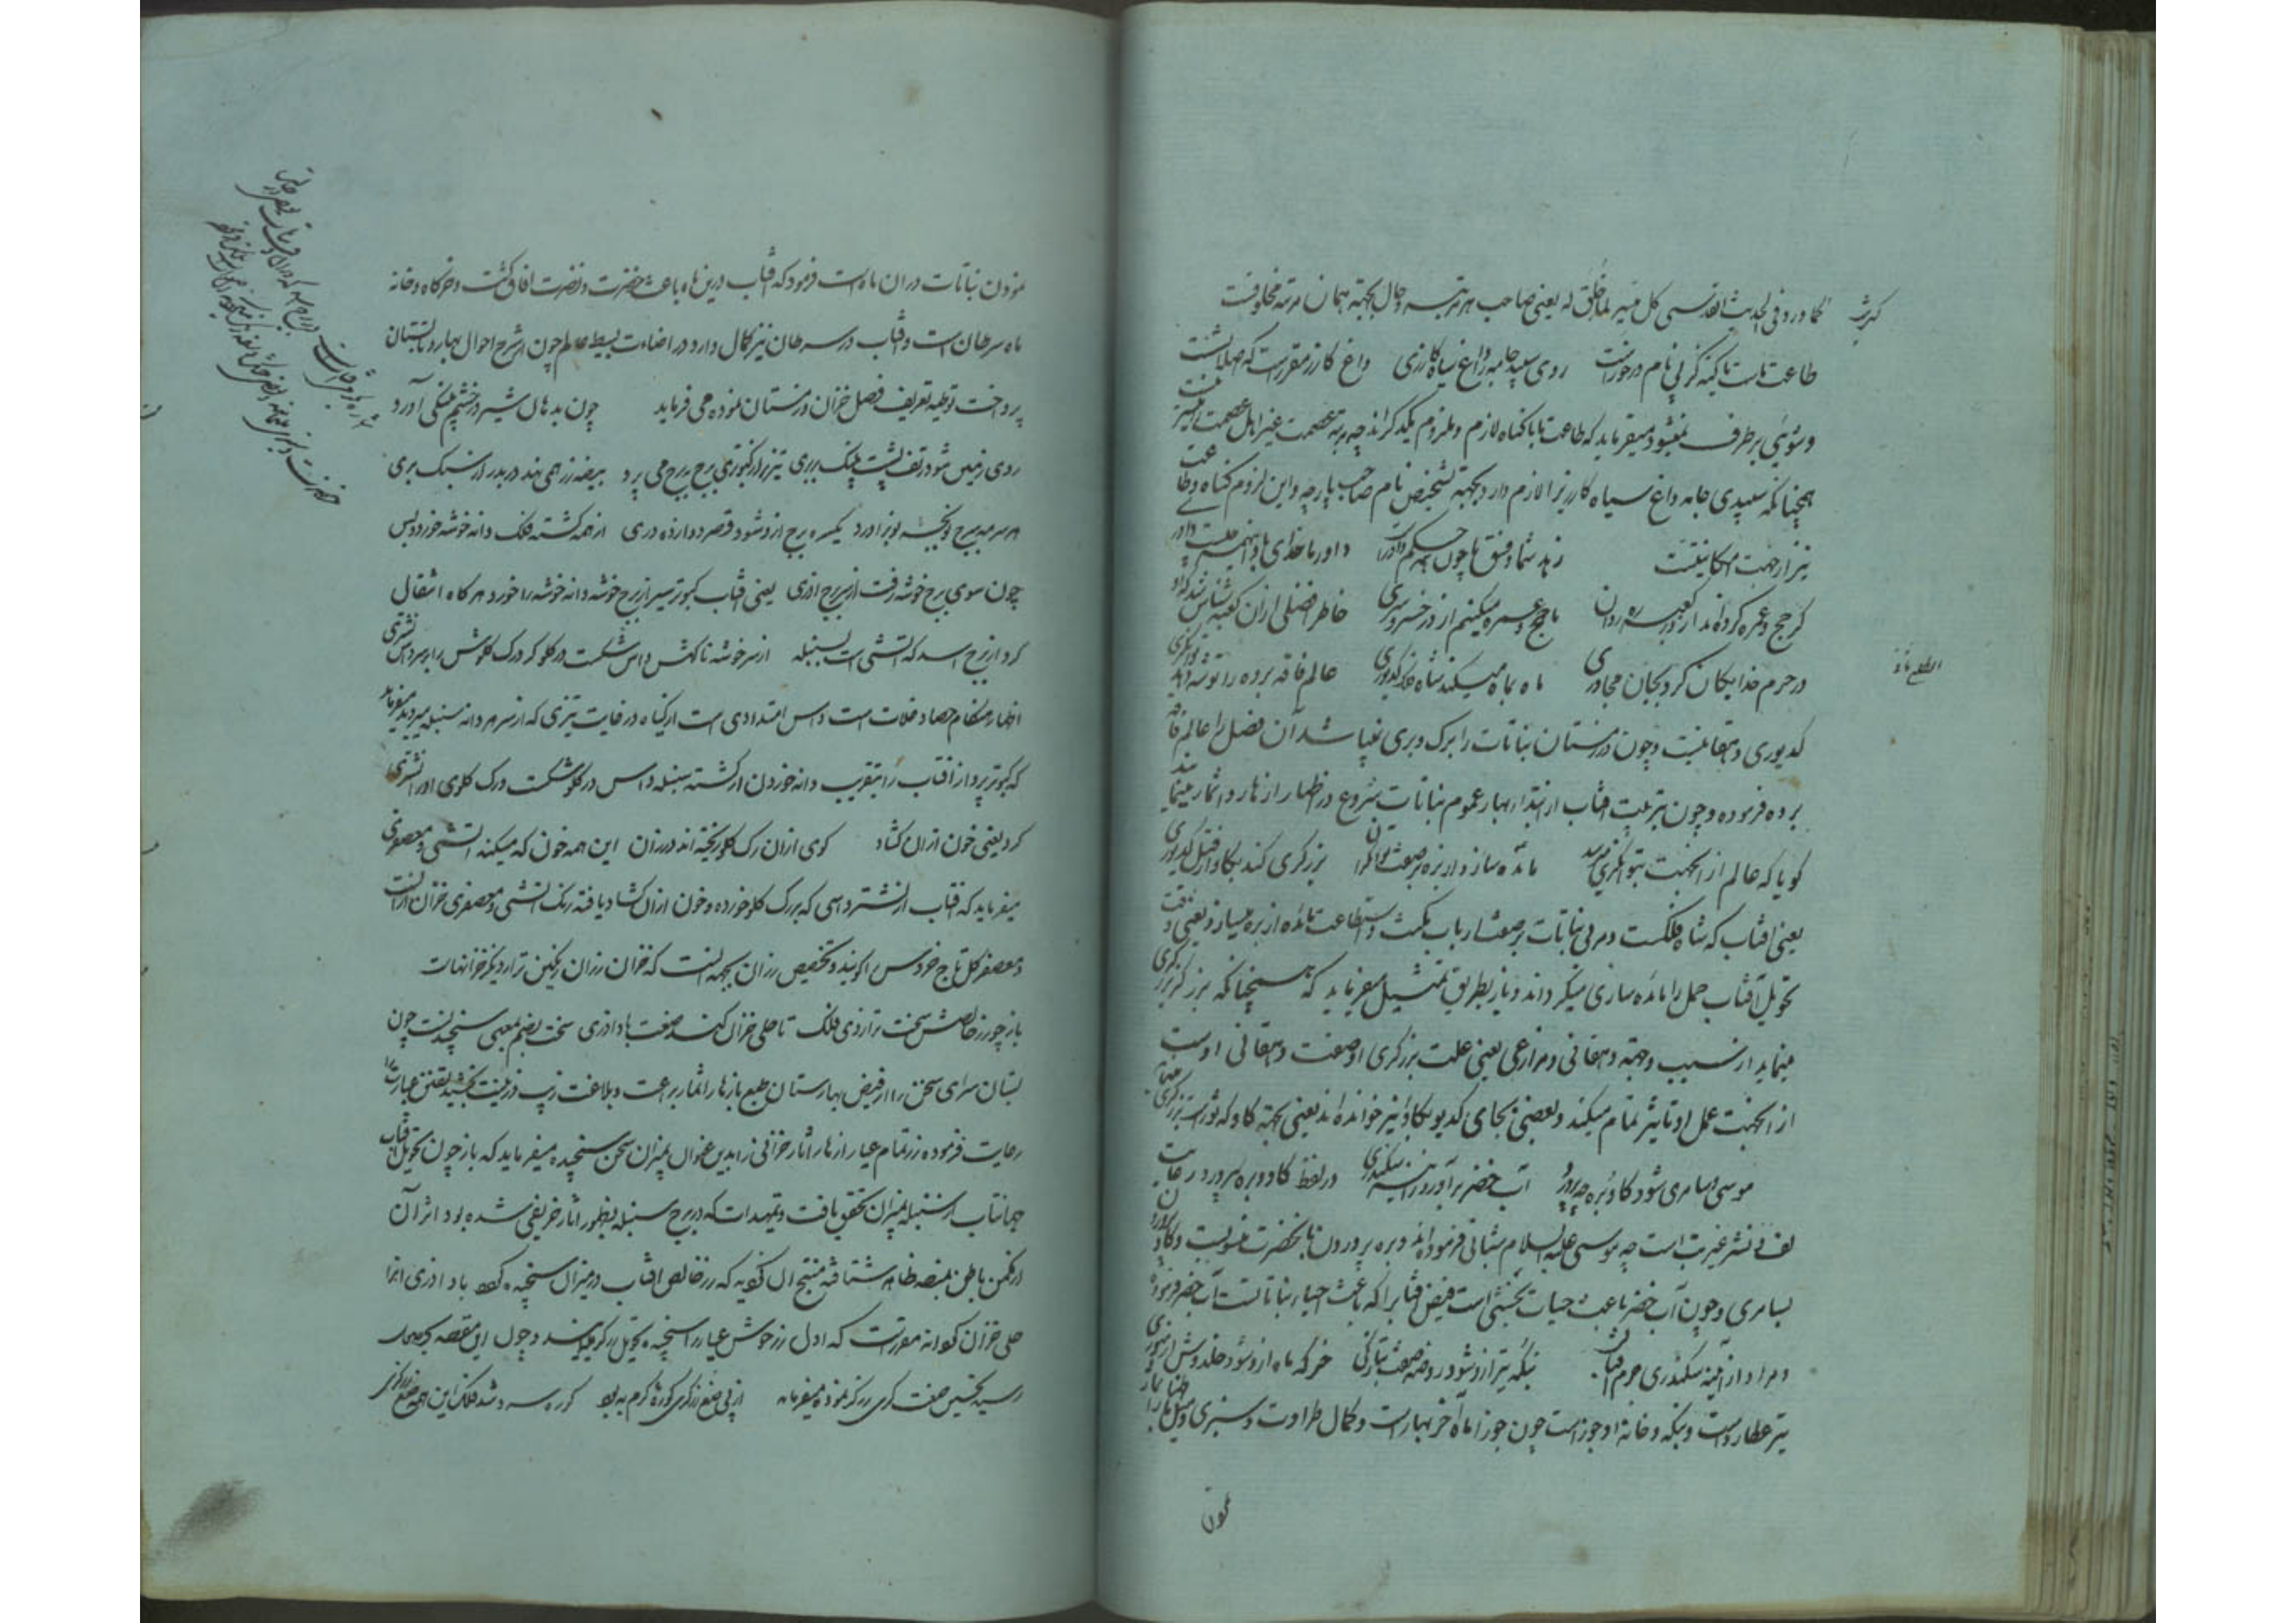 کما ورد فی الحدیث القدسی کل میسر لما خلق له یعنی صاحب هر مرتبه و حال بجهته همان مرتبه مخلوقست
طاعت ماست با کنه کز پی نام درخورست روی سپید جامه را داغ سیاه کازری داغ کازر مقررست که اصلا بشست
و شوئی برطرف نمیشود میفرماید که طاعت ما با کناه لازم و ملزوم یکدیکراند چه مرتبه عصمت غیر اهل عصمت را میسر نیست
همچنانکه سپیدی جامه داغ سیاه کازر را لازم دارد بجهته تشخیص نام صاحب پارچه و این لزوم کناه و طاعت
نیز از جهت امکانیتست زهد شما و فسق ما چون همه حکم داورست داورما خدای ما اینهمه چیست داوری
کر حج و عمره کرده‌اند از در کعبه رهروان ما حج و عمره میکنیم از در خسرو سری خاطر فضلی از ان کعبه شناس شد که او
در حرم خدایکان کرد بجان مجاوری ماه بماه میکند شاه فلک کدیوری عالم فاقه برده را توشه دهد توانکری
کدیوری دهقانیست و چون در زمستان نباتات را برک و بری نمیباشد آن فصل را عالم فاقه
برده فرموده و چون بتربیت افتاب از ابتدای بهار عموم نباتات شروع در اظهار ازهار و اثمار مینمایند
کویا که عالم از انجهت بتوانکری میرسد مائده سازد از بره بر صفت توانکران برزکری کند بکاو از قبل کدیوری
یعنی افتاب که شاه فلکست و مربی نباتات بر صفت ارباب مکنت و استطاعت مائده از بره میسازد یعنی وقت
تحویل آفتاب حمل را مائده سازی میکرداند و باز بطریق تمثیل میفرماید که همچنانکه برزکر برزکری
مینماید از سبب و جهته دهقانی و مزارعی یعنی علت برزکری او صفت دهقانی اوست
از انجهت عمل او تاثیر تمام میکند و بعضی بجای کدیور بکاو نیز خوانده‌اند یعنی بجهته کاو که ثورست برزکری
موسی و سامری شود کاو و بره چه پرورد آب خضر برآورد ز آینه سکندری در لفظ کاو و بره پرورد رعایت
لف و نشر غیر مرتب است چه موسی علیه السلام شبانی فرموده‌اند و بره پروردن بانحضرت منسوبست و کاو پرورد
بسامری و چون آب خضر باعث حیات بخشی است فیض افتاب را که باعث احیاء نباتاتست آب خضر فرموده
و مراد از آینه سکندری جرم افتاب بنکه تیر از و شود روضه صفت بتازکی خرکه ماه از و شود خلدوش از منوری
تیر عطاردست و بنکه و خانه او جوزاست چون جوزا ماه آخر بهارست و کمال طراوت و سبزی و میل بهار
نمودن
نمودن نباتات دران ماه است فرمود که افتاب درین ماه باعث خضرت و نضرت افاق کشت و خرکاه و خانه
ماه سرطان است و افتاب در سرطان نیز کمال دارد در اضاءت بسیط عالم چون از شرح احوال بهار و تابستان
پرداخت توطیه تعریف فصل خزان و زمستان نموده می فرماید چون بدهان شیر در خشم پلنکی آورد
روی زمین شود ز تف پشت پلنک بربری تیزپر از کبوتری برج ببرج می پرد بیضه زر همی نهد دربدر از سبک پری
هر سر مه ببرج نو بچه نو برآورد یکسره برج از و شود قصر دوازده دری از همه کشته فلک دانه خوشه خورد و بس
چون سوی برج خوشه رفت از بر برج آذری یعنی افتاب کبوتر سیر از برج خوشه دانه خوشه را خورد هرکاه انتقال
کرد از برج اسد که آتشی است بسنبله از سر خوشه ناکهش داس شکست در کلو کرد رک کلوش را بر سر داس نشتری
اظهار هنکام حصاد غلات است و داس امتدادی است از کیاه در غایت تیزی که از سر هر دانه سنبله میروید میفرماید
که کبوتر پرواز افتاب را بتقریب دانه خوردن از کشته سنبله داس در کلو شکست و رک کلوی او را نشتری
کرد یعنی خون ازان کشاد کوی ازان رک کلو ریخته‌اند در رزان این همه خون که میکند آتشی و معصفری
میفرماید که افتاب از نشتر داسی که بر رک کلو خورده و خون ازان کشاد یافته رنک آتشی و معصفری خزان ازانست
و معصفر کل تاج خروس را کویند و تخصیص رزان بجهه انست که خزان رزان رنکین تر از دیکر خزانهاست
باز چو زر خالصش سخت ترازوی فلک تا حلی خزان کند صنعت باد آذری سخت بضم بمعنی سنجیدنست چون
بستان سرای سخن را از فیض بهارستان طبع بازهار و اثمار براعت و بلاغت زیب و زینت بخشیده تفنن عبارت را
رعایت فرموده زر تمام عیار ازهار و اثار خزانی را بدین عنوان بمیزان سخن سنجیده میفرماید که باز چون تحویل افتاب
جهانتاب از سنبله بمیزان تحقق یافت و تمهیدات که در برج سنبله بظهور اثار خریفی شده بود اثر آن
از مکمن باطن بمنصه ظاهر شتافته منتج ان کردید که زر خالص افتاب در میزان سنجیده کشت باد آذری انرا
حلی خزان کرداند مقررست که اول زر خوش عیار را سنجیده تحویل زرکر میکنند و چون این مقدمه بجهان
رسید تخییل صنعت کری زرکر نموده میفرماید از پی صنع زرکری کوره کرم به بود کوره سرد شد فلک این همه صنع زرکری